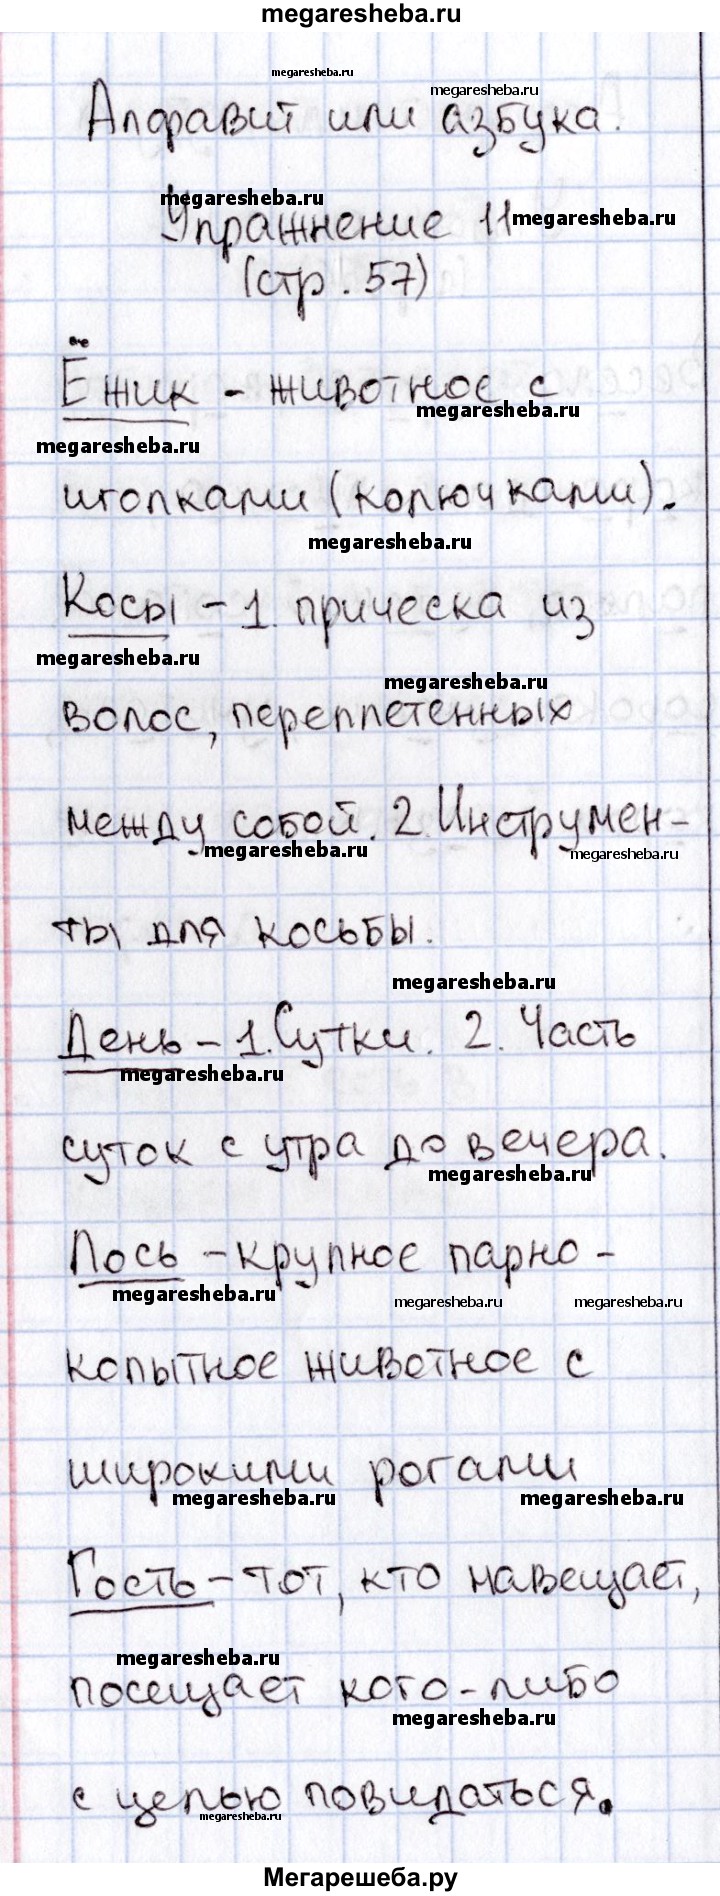 megaresheba.ru
megaresheba.ru
megaresheba.ru
Алфавит или азбука.
megaresheba.ru
Упражнение 11
megaresheba.ru
(стр. 57)
Ёжик - животное с
megaresheba.ru
megaresheba.ru
иголками (колючками).
megaresheba.ru
Косы - 1. прическа из
megaresheba.ru
megaresheba.ru
волос, переплетенных
между собой. 2. Инструмен-
megaresheba.ru
megaresheba.ru
ты для косьбы.
megaresheba.ru
День - 1. Сутки. 2. Часть
megaresheba.ru
суток с утра до вечера.
megaresheba.ru
Лось - крупное парно-
megaresheba.ru
megaresheba.ru
megaresheba.ru
копытное животное с
широкими рогами
megaresheba.ru
megaresheba.ru
Гость - тот, кто навещает,
megaresheba.ru
посещает кого-либо
megaresheba.ru
с целью повидаться.
megaresheba.ru
Мегарешеба.ру